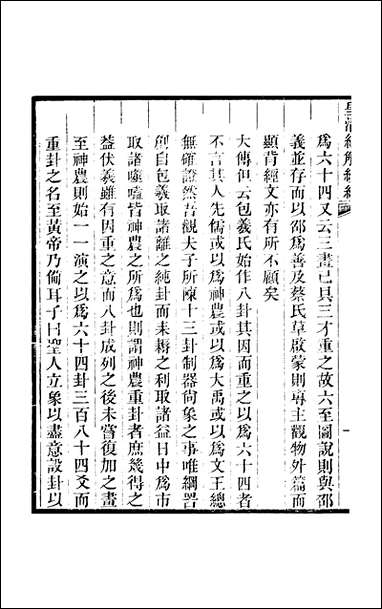 皇清經解續編
爲六十四又云三畫已具三才重之故六至圖說則與邵
義並存而以邵爲善及蔡氏草啟蒙則專主觀物外篇而
顯背經文亦有所不顧矣
大傳但云包羲氏始作八卦其因而重之以爲六十四者
不言其人先儒或以爲神農或以爲大禹或以爲文王總
無確證然吾觀夫子所陳十三卦制器尙象之事唯網罟
創自包羲取諸離之純卦而耒耨之利取諸益日中爲市
取諸噬嗑皆神農之所爲也則謂神農重卦者庶幾得之
益伏羲雖有因重之意而八卦成列之後未嘗復加之畫
至神農則始一一演之以爲六十四卦三百八十四爻而
重卦之名至黃帝乃備耳子曰聖人立象以盡意設卦以